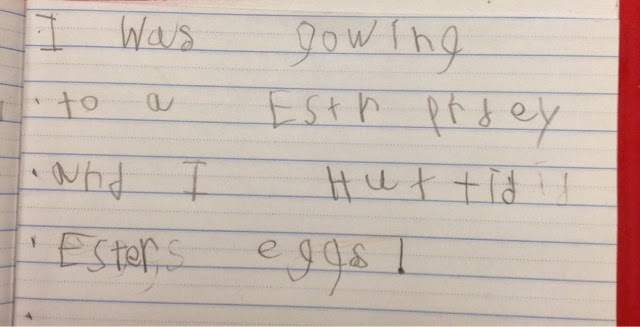 I was gowing
to a Estr prdey
and I Hut tid
Esters eggs!